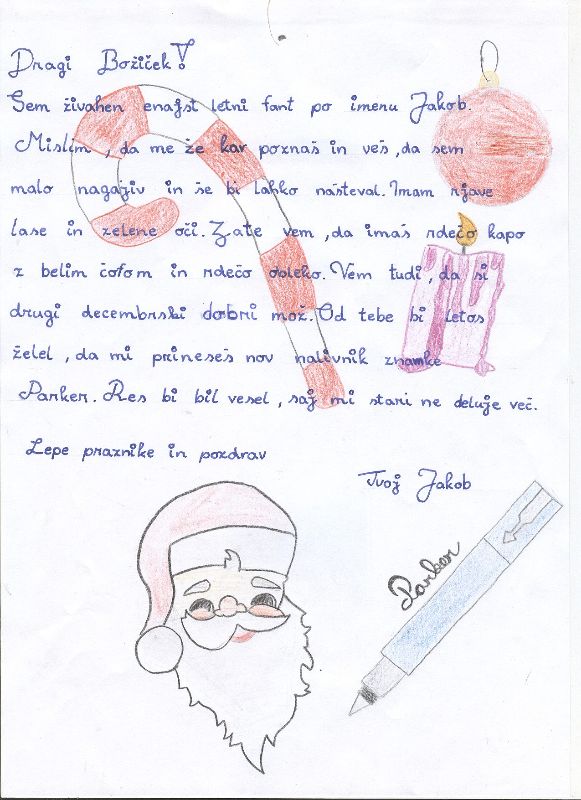 Dragi Božiček!
Sem živahen enajst letni fant po imenu Jakob.
Mislim, da me že kar poznaš in veš, da sem
malo nagajiv in še bi lahko našteval. Imam rjave
lase in zelene oči. Zate vem, da imaš rdečo kapo
z belim cofom in rdečo obleko. Vem tudi, da si
drugi decembrski dobri mož. Od tebe bi letos
želel, da mi prineseš nov nalivnik znamke
Parker. Res bi bil vesel, saj mi stari ne deluje več.
Lepe praznike in pozdrav
Tvoj Jakob
Parker